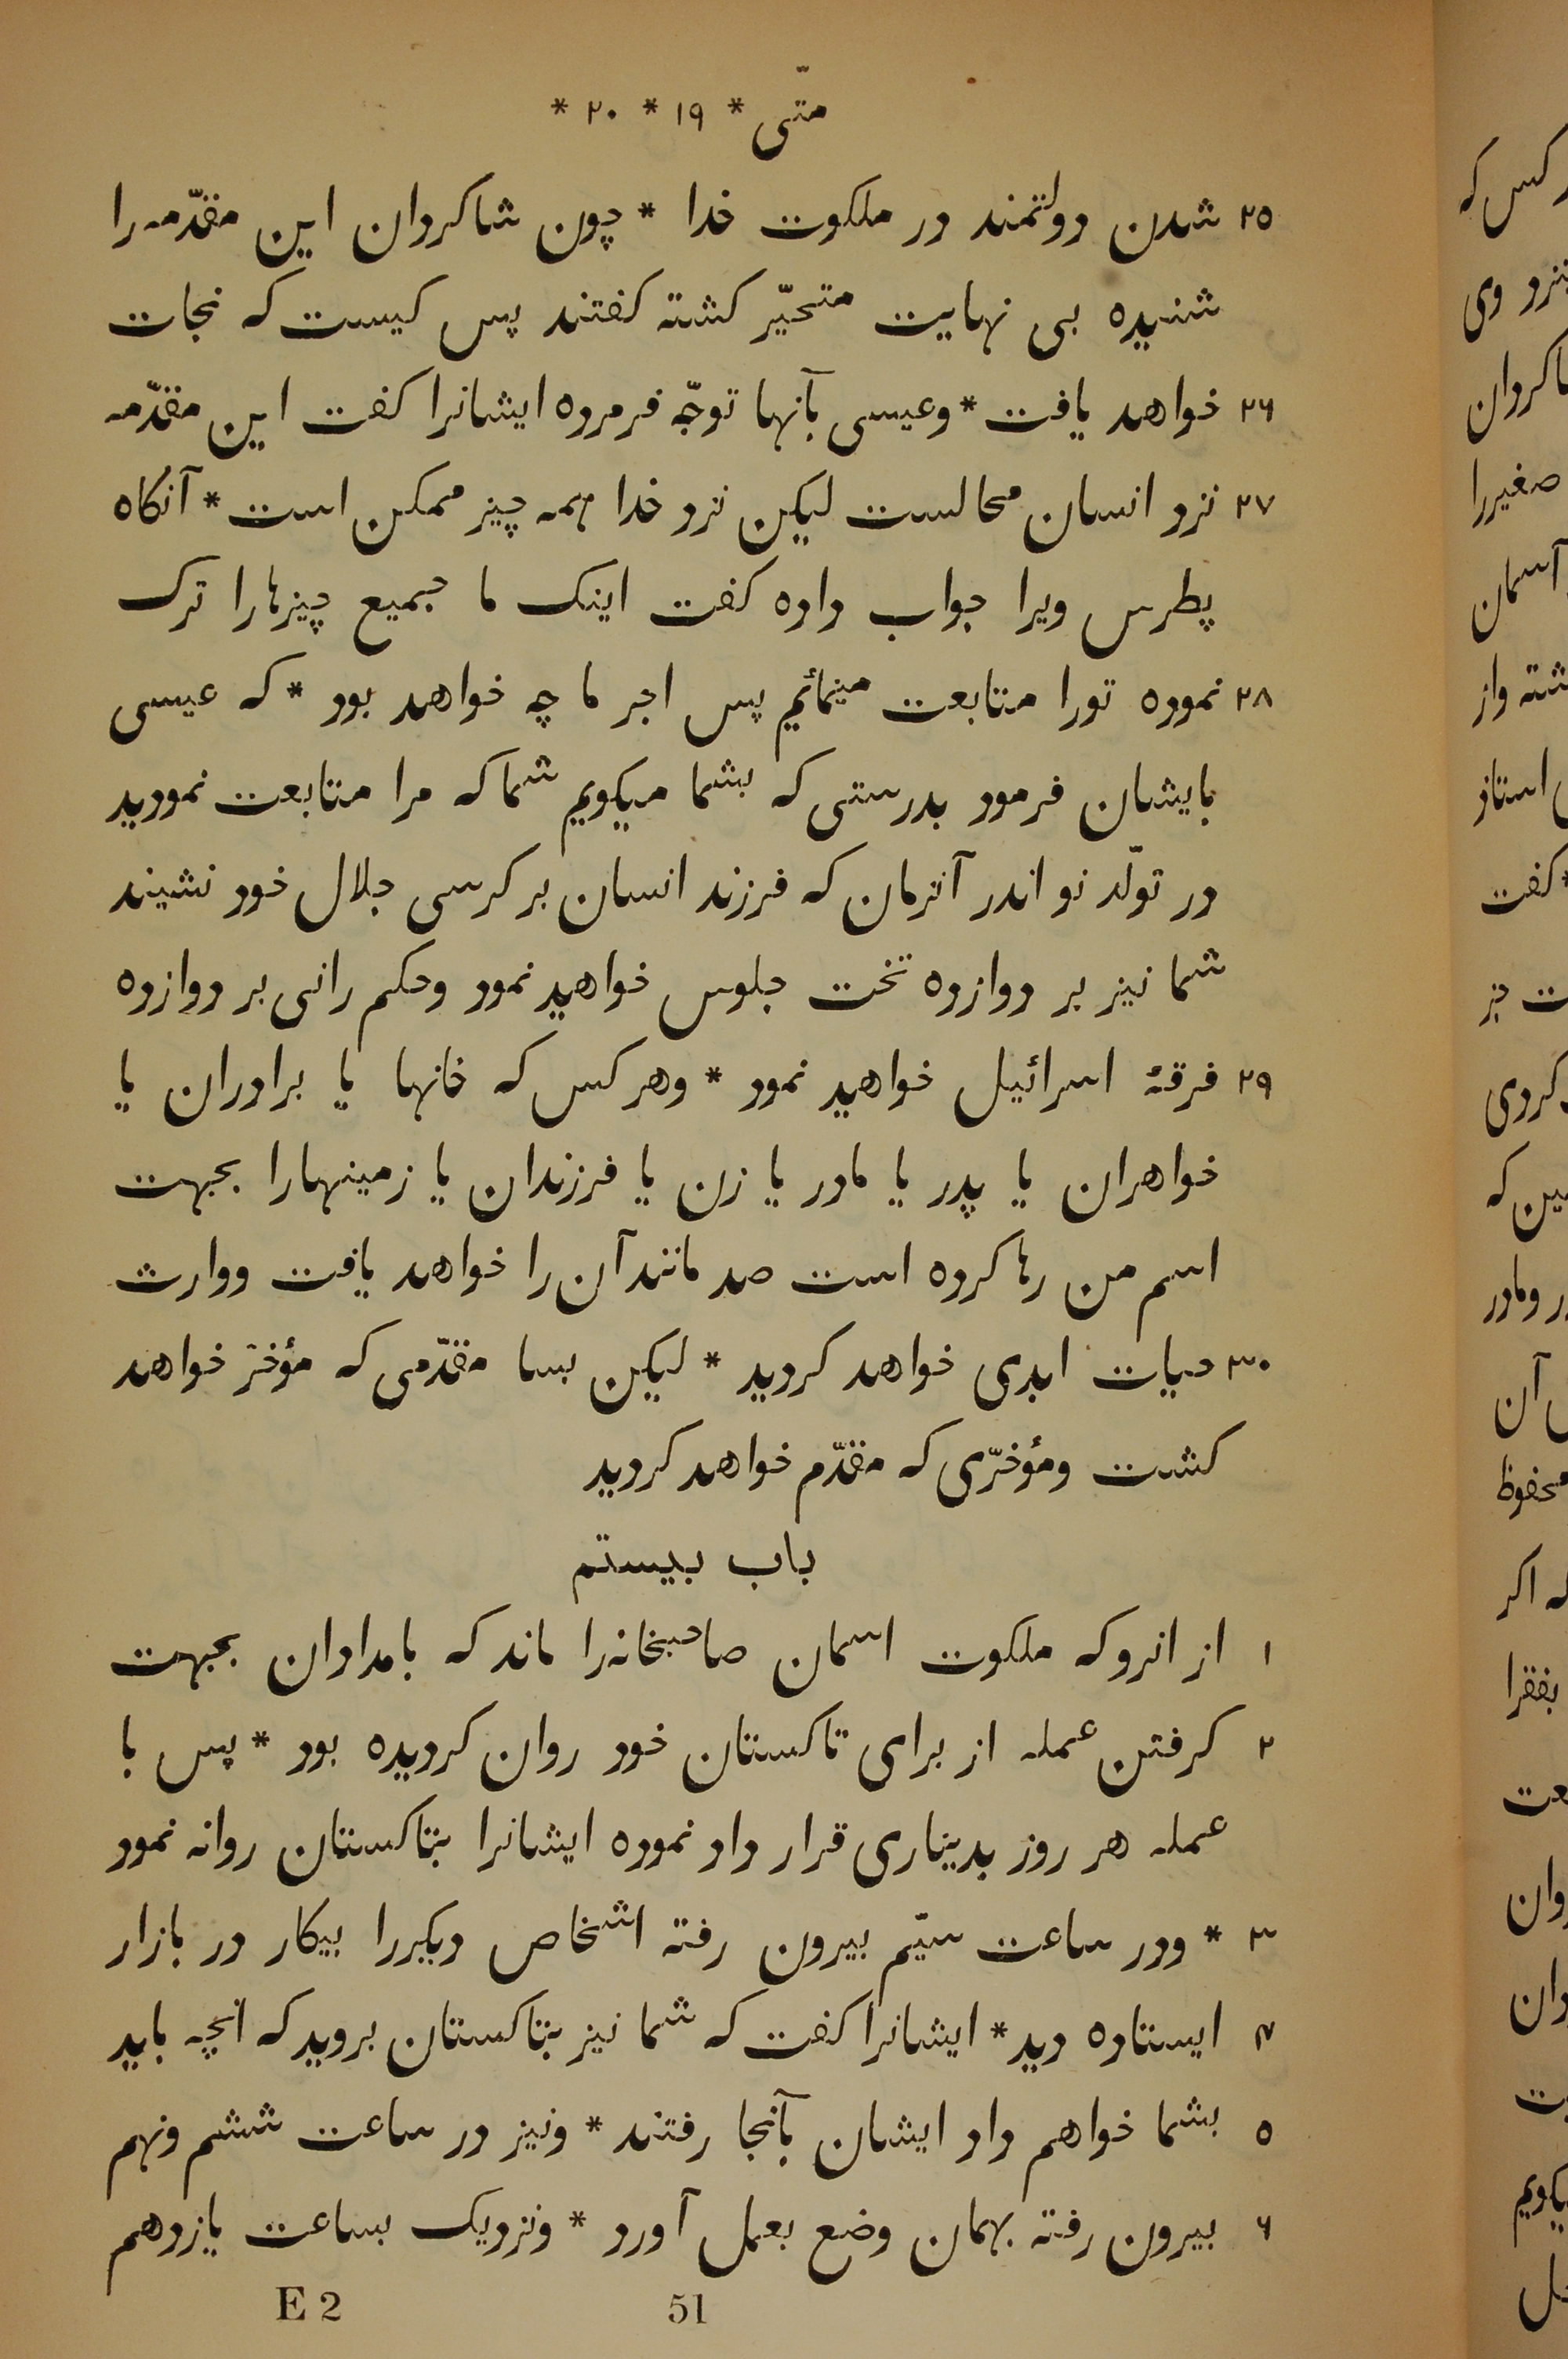 متّی * ۱۹ * ۲۰ *
۲۵ شدن دولتمند در ملکوت خدا * چون شاکردان این مقدّمه را
شنیده بی نهایت متحیّر کشته کفتند پس کیست که نجات
۲۶ خواهد یافت * وعیسی بآنها توجّه فرموده ایشانرا کفت این مقدّمه
۲۷ نزد انسان محالست لیکن نزد خدا همه چیز ممکن است * آنکاه
پطرس ویرا جواب داده کفت اینک ما جمیع چیزهارا ترک
۲۸ نموده تورا متابعت مینمائیم پس اجر ما چه خواهد بود * که عیسی
بایشان فرمود بدرستی که بشما میکویم شما که مرا متابعت نمودید
در تولّد نو اندر آنزمان که فرزند انسان بر کرسی جلال خود نشیند
شما نیز بر دوازده تخت جلوس خواهید نمود وحکم رانی بر دوازده
۲۹ فرقهٔ اسرائیل خواهید نمود * وهر کس که خانها یا برادران یا
خواهران یا پدر یا مادر یا زن یا فرزندان یا زمینهارا بجهت
اسم من رها کرده است صد مانند آن را خواهد یافت ووارث
۳۰ حیات ابدی خواهد کردید * لیکن بسا مقدّمی که مؤخّر خواهد
کشت ومؤخّری که مقدّم خواهد کردید
باب بیستم
۱ از انرو که ملکوت اسمان صاحبخانه‌را ماند که بامدادان بجهت
۲ کرفتن عمله از برای تاکستان خود روان کردیده بود * پس با
عمله هر روز بدیناری قرار داد نموده ایشانرا بتاکستان روانه نمود
۳ * ودر ساعت سیّم بیرون رفته اشخاص دیکررا بیکار در بازار
۴ ایستاده دید * ایشانرا کفت که شما نیز بتاکستان بروید که انچه باید
۵ بشما خواهم داد ایشان بآنجا رفتند * ونیز در ساعت ششم ونهم
۶ بیرون رفته بهمان وضع بعمل آورد * ونزدیک بساعت یازدهم
E 2 51